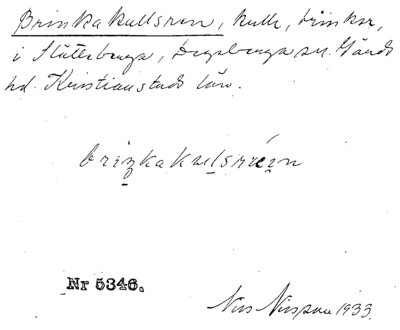 Brinkakullsren, kulle, brinkar,
i Slättebunga, Degeberga sn. Gärds
hd. Kristianstads län.
brinkakulsréen
Nr 5346.
Nils Nilsson 1933.